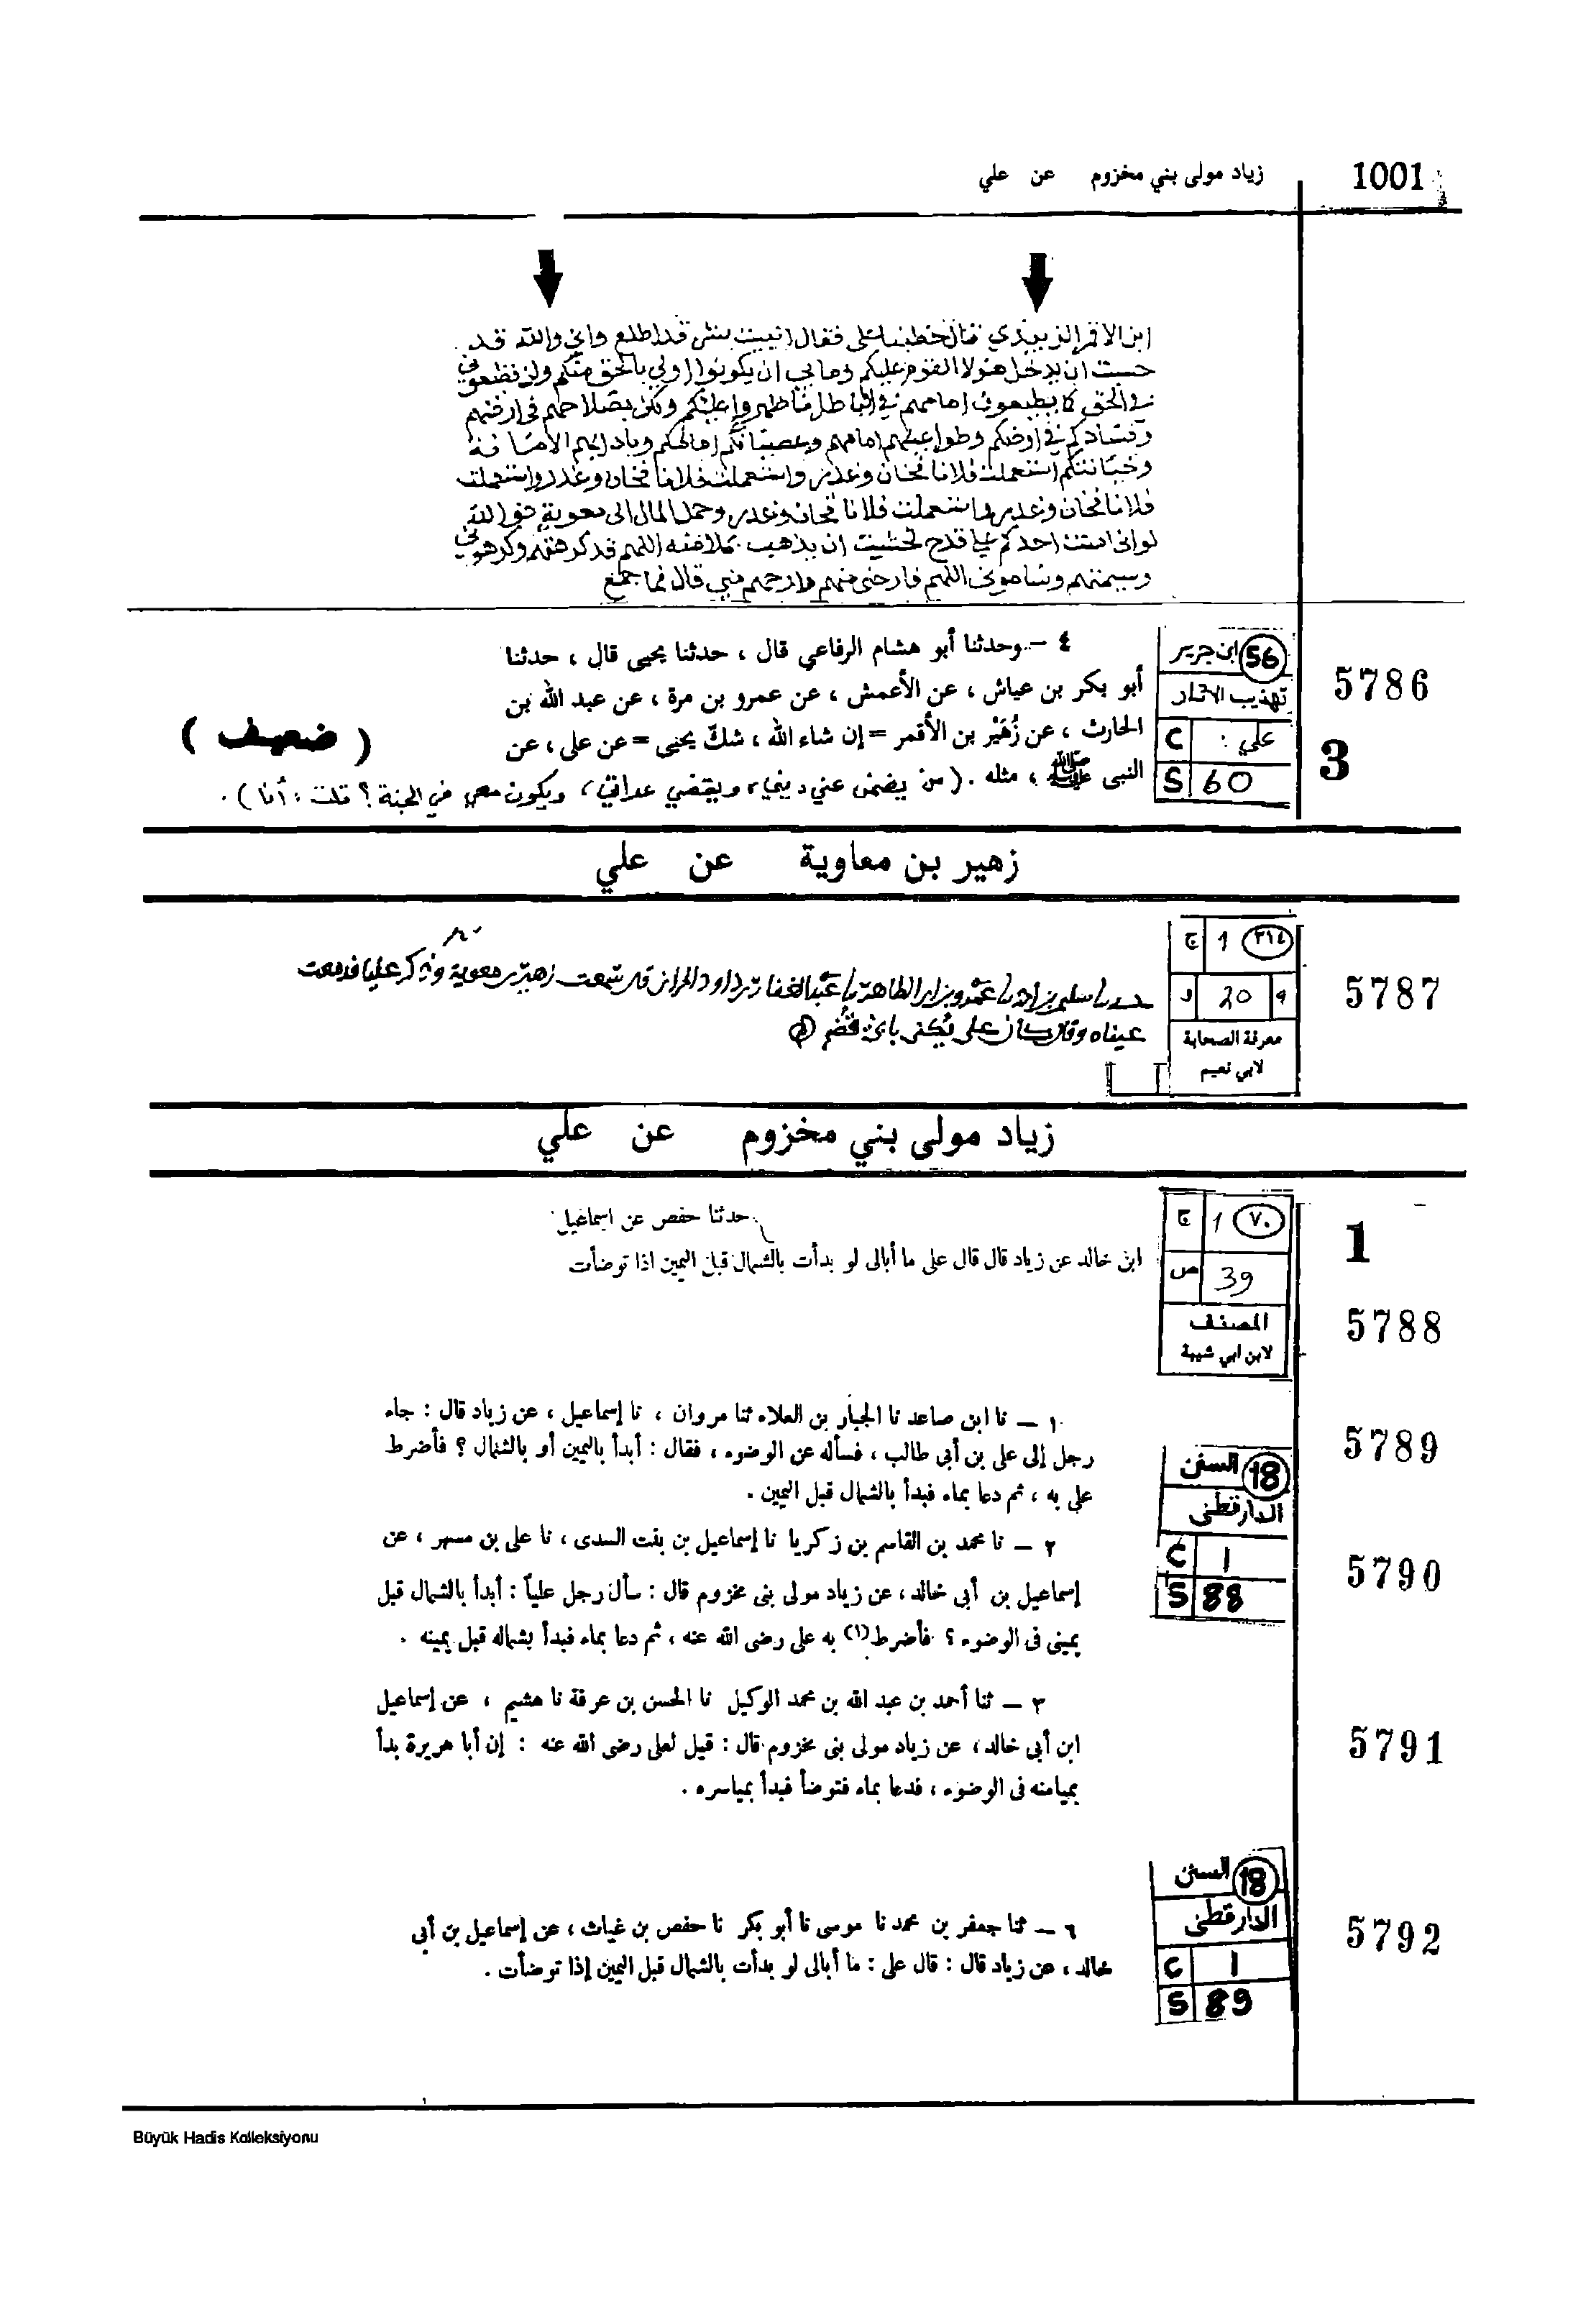 زياد مولى بني مخزوم عن علي
1001
ابن الاقمر الزبيدي قال خطبنا علي فقال انبيت بسر قد اطلع واني والله قد
حسبت ان يدخل هولا القوم عليكم وما بي ان يكونوا اولي بالحق منكم ولن تطيعوني
في الحق كما يطيعون امامهم في الباطل ما ظهروا عليكم ولكن بصلاحهم في ارضهم
وفسادكم في ارضكم وطواعيتهم امامهم وعصيانكم امامكم وباداهم الامانة
وخيانتكم استعملت فلانا فخان وغدر واستعملت فلانا فخان وغدر واستعملت
فلانا فخان وغدر واستعملت فلانا فخان وغدر وحمل المال الى معوية فوالله
لو اني امنت احدكم على قدح لخشيت ان يذهب بعلاقته اللهم قد كرهتهم وكرهوني
وسيمتهم وساموني اللهم فارحني منهم وارحهم مني قال فما جمع
5786
3
56 ابن جرير
تهذيب الاثار
علي: C
60 S
٤ – وحدثنا أبو هشام الرفاعي قال ، حدثنا يحيى قال ، حدثنا
أبو بكر بن عياش ، عن الأعمش ، عن عمرو بن مرة ، عن عبد الله بن
الحارث ، عن زُهَيْر بن الأقمر = إن شاء الله ، شكّ يحيى = عن على ، عن
( ضعيف )
النبى ﷺ ، مثله . ( من يضمن عني ديني ، ويقضي عداتي ، ويكون معي في الجنة ؟ قلت : أنا ) .
زهير بن معاوية عن علي
5787
٣١٤ 1 ج
و 20 ر
معرفة الصحابة
لابي نعيم
حدثنا سليم بن احمد نا عمرو بن ابي الطاهر نا عبد الغفار بن داود الحراني قال سمعت زهير بن معوية وذكر عليا فدمعت
عيناه وقال كان علي يكنى بابي قضم
زياد مولى بني مخزوم عن علي
1
5788
٧٠ 1 ج
39 ص
المصنف
لابن ابي شيبة
حدثنا حفص عن اسماعيل
ابن خالد عن زياد قال قال على ما أبالى لو بدأت بالشمال قبل اليمين اذا توضأت
5789
18 السنن
الدارقطنى
1 C
88 S
١ – نا ابن صاعد نا الجبار بن العلاء ثنا مروان ، نا إسماعيل ، عن زياد قال : جاء
رجل إلى على بن أبى طالب ، فسأله عن الوضوء ، فقال : أبدأ باليمين أو بالشمال ؟ فأضرط
على به ، ثم دعا بماء فبدأ بالشمال قبل اليمين .
5790
٢ – نا محمد بن القاسم بن زكريا نا إسماعيل بن بنت السدى ، نا على بن مسهر ، عن
إسماعيل بن أبى خالد ، عن زياد مولى بنى مخزوم قال : سأل رجل علياً : أبدأ بالشمال قبل
يمينى فى الوضوء ؟ فأضرط (١) به على رضى الله عنه ، ثم دعا بماء فبدأ بشماله قبل يمينه .
5791
٣ – ثنا أحمد بن عبد الله بن محمد الوكيل نا الحسن بن عرفة نا هشيم ، عن إسماعيل
ابن أبى خالد ، عن زياد مولى بنى مخزوم قال : قيل لعلى رضى الله عنه : إن أبا هريرة بدأ
بميامنه فى الوضوء ، فدعا بماء فتوضأ فبدأ بمياسره .
5792
18 السنن
الدارقطنى
1 C
89 S
٦ – ثنا جعفر بن محمد نا موسى نا أبو بكر نا حفص بن غياث ، عن إسماعيل بن أبى
خالد ، عن زياد قال : قال على : ما أبالى لو بدأت بالشمال قبل اليمين إذا توضأت .
Büyük Hadis Kolleksiyonu